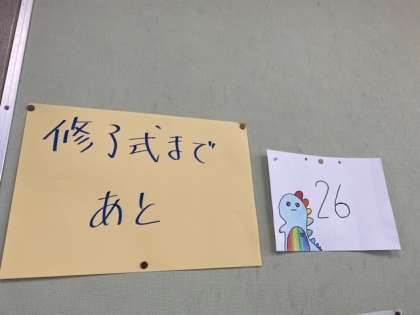 修了式まで
あと
26